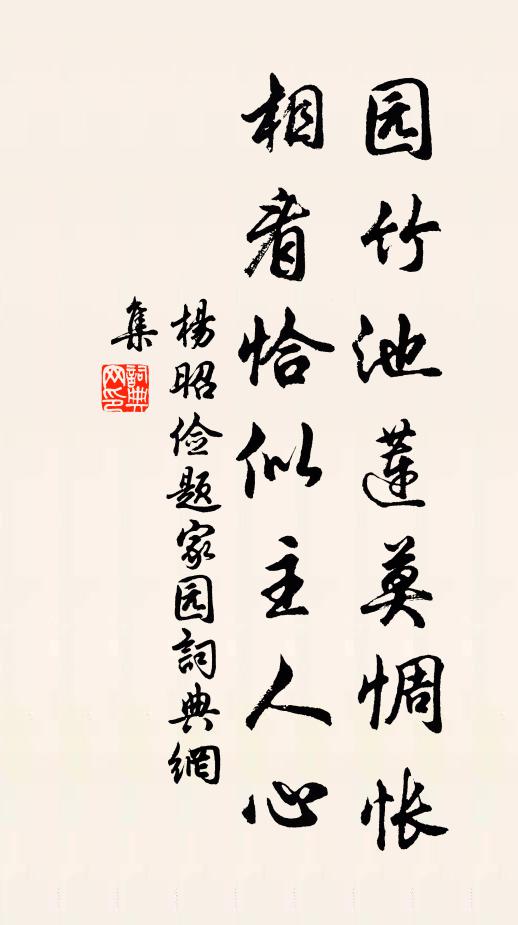 园竹池莲莫惆怅
相看恰似主人心
楊昭俭题家园詞典網
集
詞典
网印